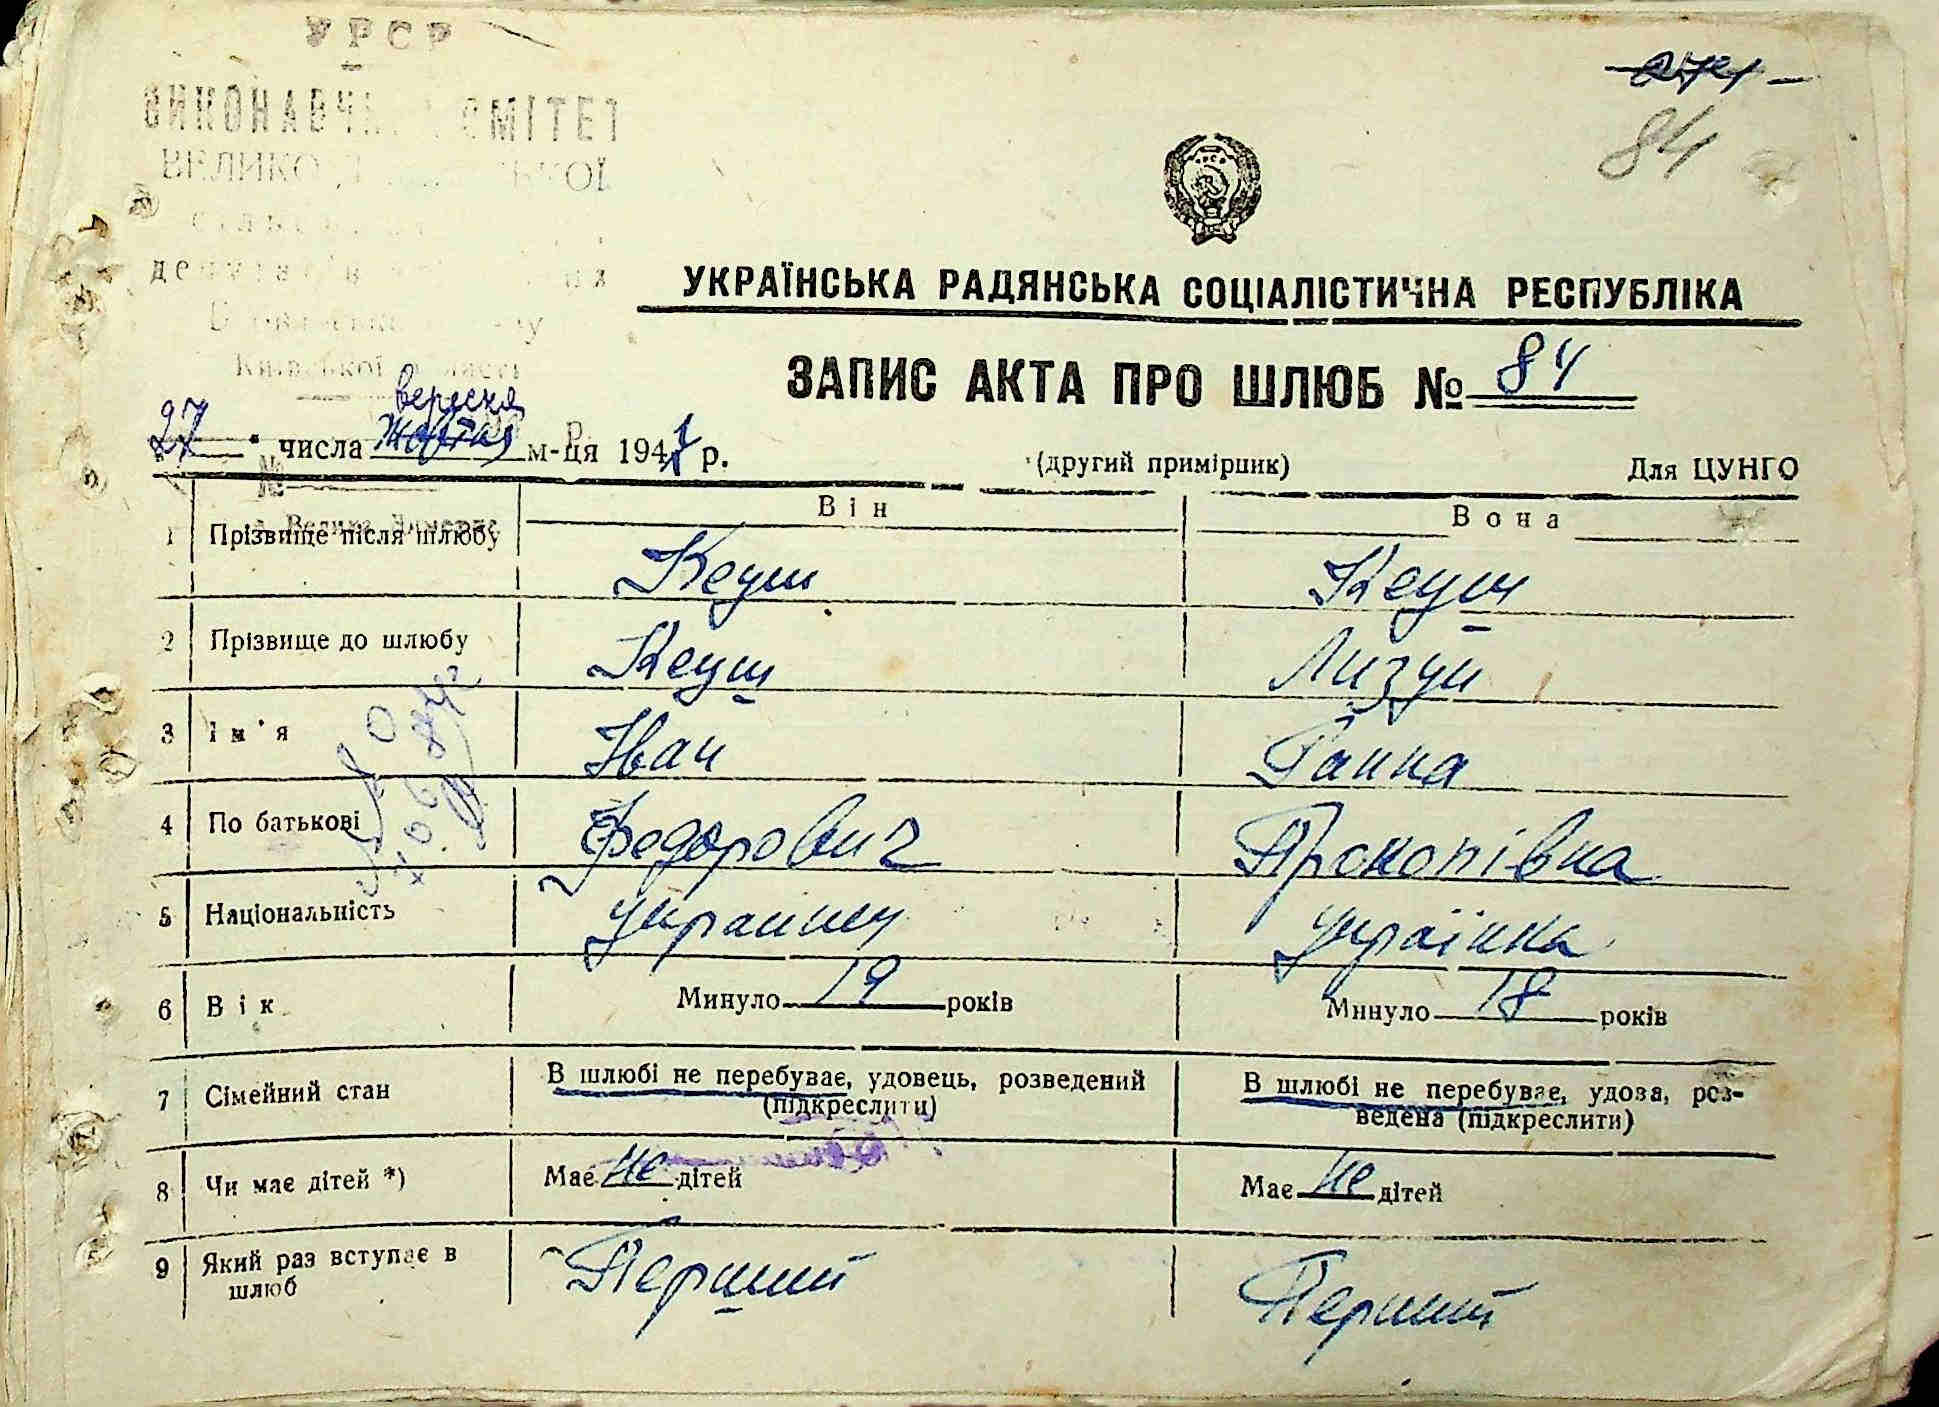 УРСР
ВИКОНАВЧИЙ КОМІТЕТ
Київської області
84
УКРАЇНСЬКА РАДЯНСЬКА СОЦІАЛІСТИЧНА РЕСПУБЛІКА
ЗАПИС АКТА ПРО ШЛЮБ № 84
вересня
27 числа жовтня м-ця 194 р.
(другий примірник) Для ЦУНГО
Він Вона
1 Прізвище після шлюбу Кеуш Кеуш
2 Прізвище до шлюбу Кеуш Лизун
3 Ім'я Іван Ганна
4 По батькові Федорович Прокопівна
5 Національність українец українка
6 Вік Минуло 19 років Минуло 18 років
7 Сімейний стан В шлюбі не перебуває, удовець, розведений (підкреслити) В шлюбі не перебуває, удова, роз-ведена (підкреслити)
8 Чи має дітей *) Має не дітей Має не дітей
9 Який раз вступає в шлюб Перший Перший